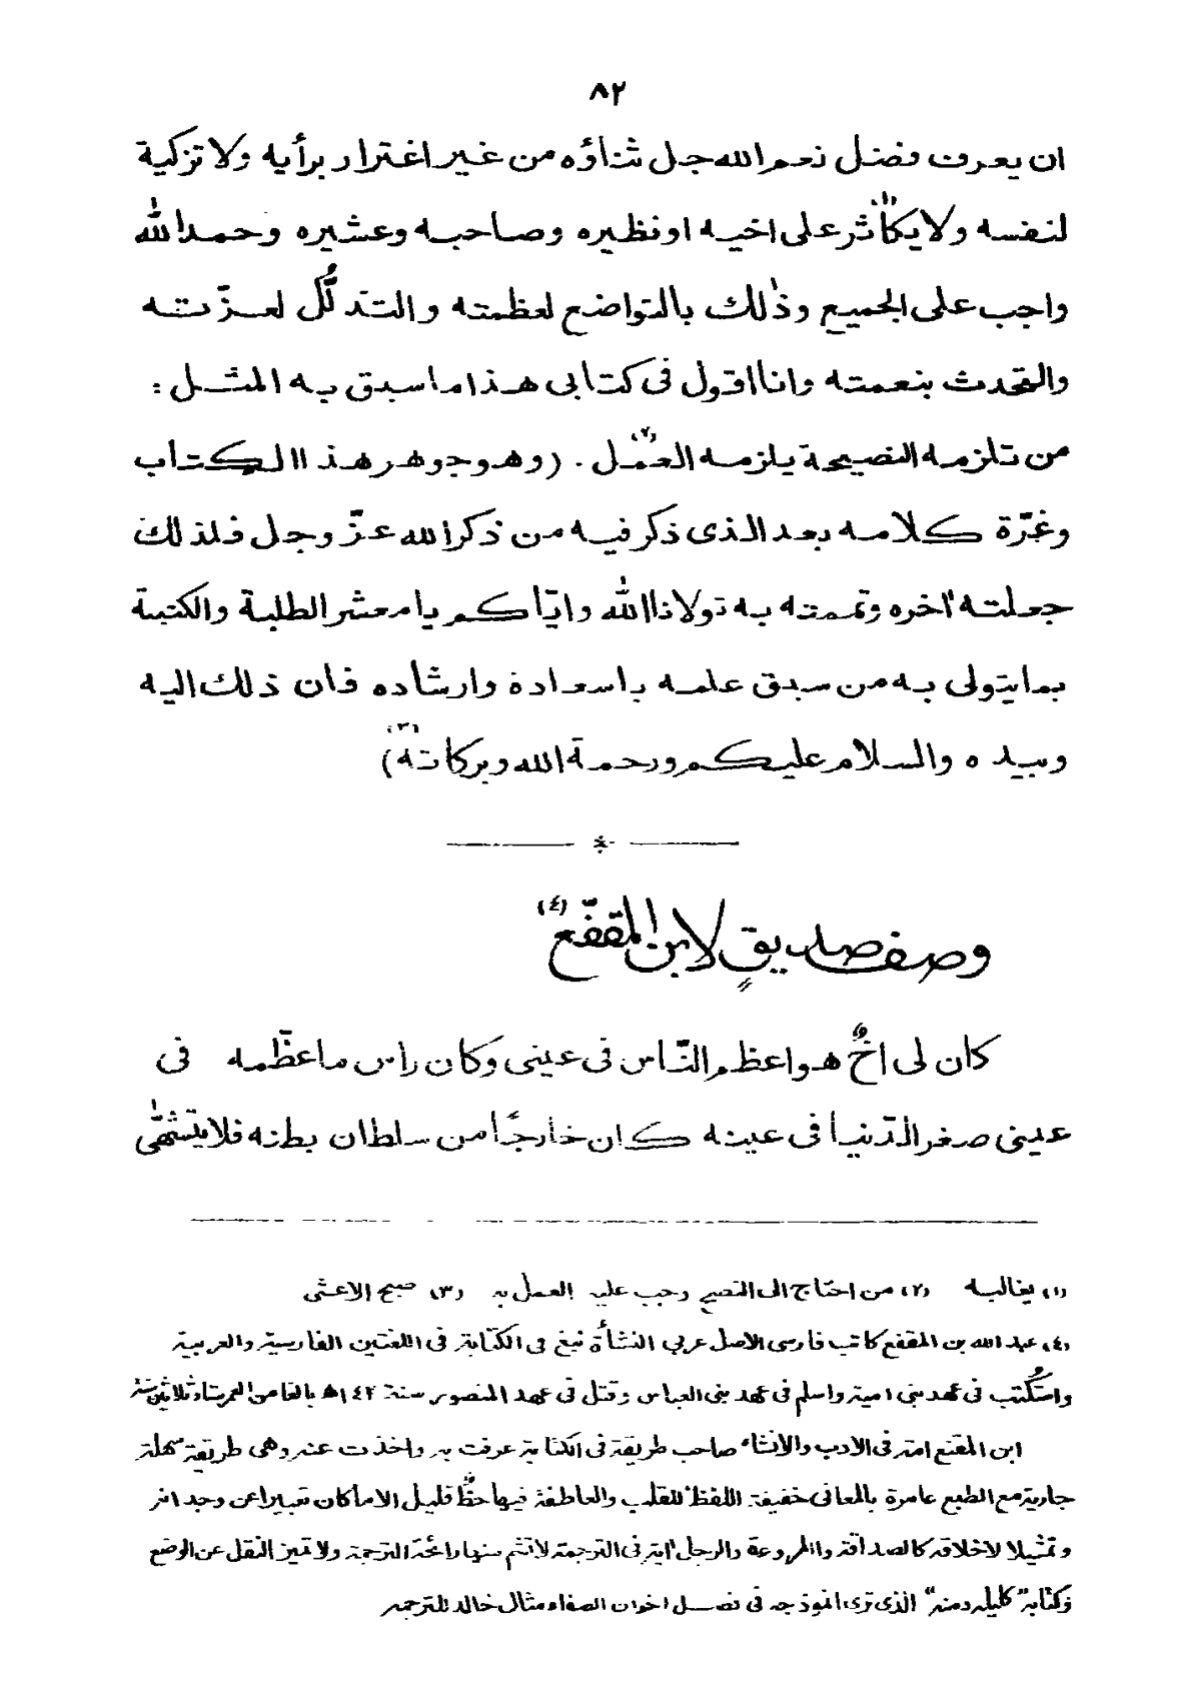 ٨٢
ان يعرف فضل نعم الله جل ثناؤه من غير اغترار برأيه ولا تزكية
لنفسه ولا يكاثر(١) على اخيه او نظيره وصاحبه وعشيره وحمد الله
واجب على الجميع وذٰلك بالتواضع لعظمته والتذلُّل لعزّته
والتحدث بنعمته وانا اقول فى كتابى هذا ما سبق به المثل :
من تلزمه النصيحة يلزمه العمل(٢) . (وهو جوهر هذا الكتاب
وغرّة كلامه بعد الذى ذكر فيه من ذكر الله عزّ وجل فلذلك
جعلته اٰخره وتممته به تولانا الله وايّاكم يا معشر الطلبة والكتبة
بما يتولى به من سبق علمه باسعاده وارشاده فان ذلك اليه
وبيده والسلام عليكم ورحمة الله وبركاته(٣))
وصف صديقٍ لابن المقفّع(٤)
كان لى اخٌ هو اعظم النّاس فى عينى وكان راس ما عظّمه فى
عينى صغر الدّنيا فى عينه كان خارجًا من سلطان بطنه فلا يتشهّى
(١) يغالبه (٢) من احتاج الى النصح وجب عليه العمل به (٣) صبح الاعشى
(٤) عبد الله بن المقفع كاتب فارسى الاصل عربي النشأة نبغ فى الكتابة فى اللغتين الفارسية والعربية
واستُكتب فى عهد بنى امية واسلم فى عهد بنى العباس وقتل فى عهد المنصور سنة ١٤٢ه بالغا من العمر ستا وثلاثين سنة
ابن المقفع امة فى الادب والانشاء صاحب طريقة فى الكتابة عرفت به واخذت عنه وهى طريقة سهلة
جارية مع الطبع عامرة بالمعانى خفيفة اللفظ للقلب والعاطفة فيها حظٌّ قليل الا ما كان تعبيرا عن وجد انر
وتمثيلا لاخلاقه كالصداقة والمروءة والرجل اٰية فى الترجمة لا تشم منها رائحة الترجمة ولا تميز النقل عن الوضع
وكتابه "كليله دمنه" الذى ترى انموذجه فى فصل اخوان الصفاء مثال خالد للترجمه